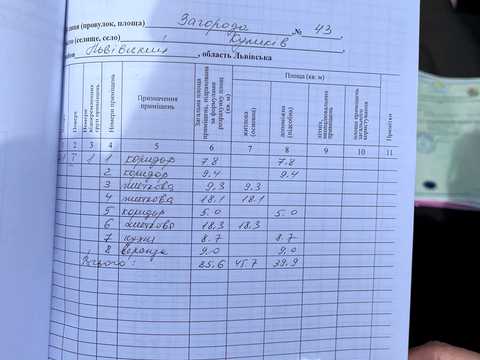 (провулок, площа) Загорода № 43
(селище, село) Куликів
Львівський, область Львівська
Поверх
Номери приміщень
Призначення приміщень
Загальна площа приміщень, підрахована за формулами розрахунку площ (кв. м)
Площа (кв. м)
житлова (основна)
допоміжна (підсобна)
площа приміщень загального користування
Примітки
2 3 4 5 6 7 8 9 10 11
1 1 коридор 7.8 7.8
2 коридор 9.4 9.4
3 житлова 9.3 9.3
4 житлова 18.1 18.1
5 коридор 5.0 5.0
6 житлова 18.3 18.3
7 кухня 8.7 8.7
8 веранда 9.0 9.0
Всього: 25.6 45.7 39.9